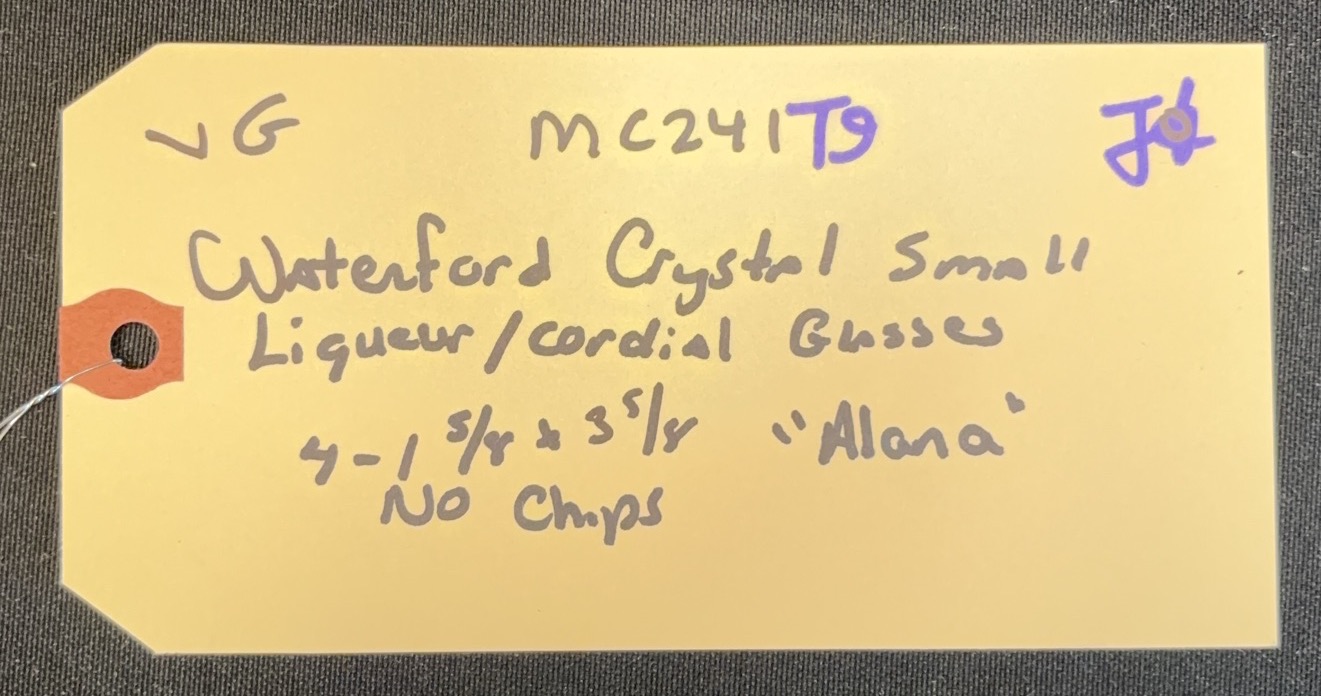 VG MC241T9
Waterford Crystal Small
Liqueur/cordial Glasses
4-1 5/8 x 3 5/8 "Alana"
No Chips